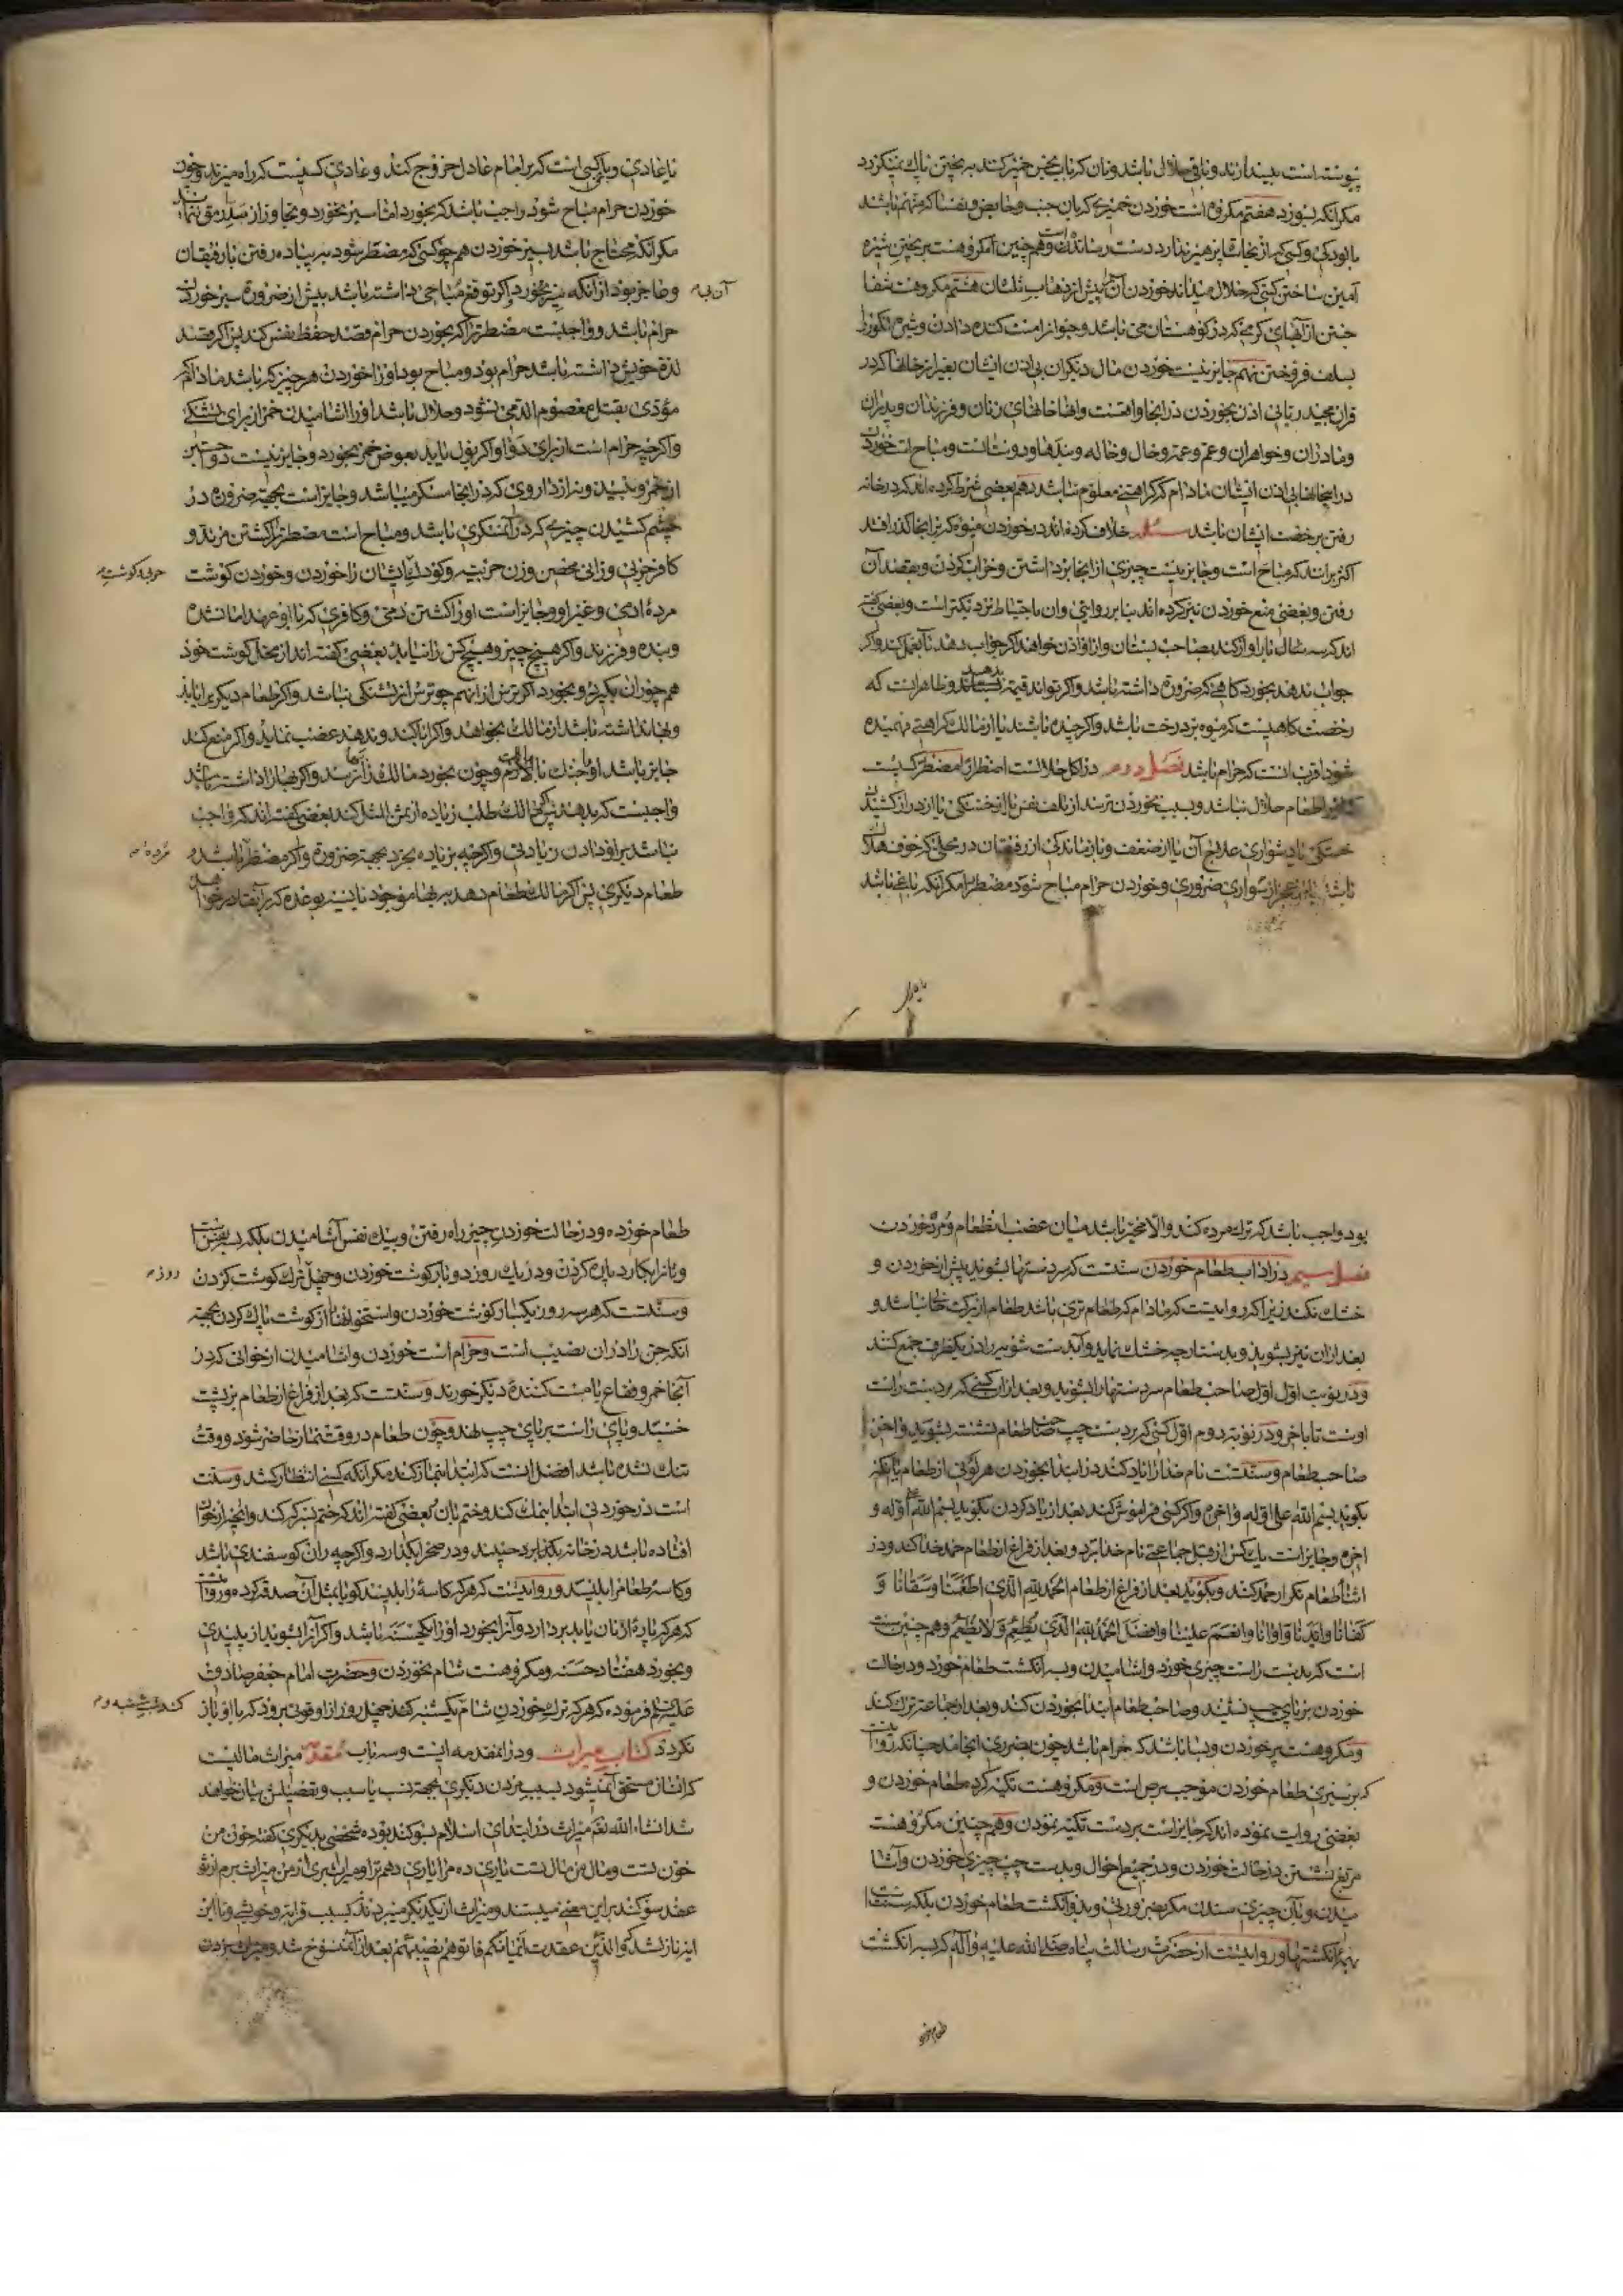 پیوسته است بیندازند و باقی حلال باشد و نان که باب نجس خمیر کنند به پختن پاک نمیگردد
مگر آنکه بسوزد هفتم مکروه است خوردن خمیری که بآن جنب و حایض و نفسا که متهم باشند
آمین ساختن کسی که حلال میداند خوردن آن پیش از ذهاب ثلثان هشتم مکروهست شفا
جستن از آبهای گرمی که در کوهستان می باشد و جو از امنت کننده دادن و شیره انگور را
بسلف فروختن نهم جایز نیست خوردن مال دیگران بی اذن ایشان بغیر از خانها که در
قران مجید ربانی اذن بخوردن در آنجا واقعست وانها خانهای زنان و فرزندان و پدران
و مادران و خواهران و عم و عمه و خال و خاله و بندها و دوستانست و مباح است خوردن
در اینجاها بی اذن ایشان مادام که کراهتی معلوم نباشد دهم بعضی شرط کرده اند که در خانه
رفتن برخصت ایشان باشد مسئله خلاف کرده اند در خوردن میوه که بر آنجا گذر افتد
اکثر برانند که مباح است و جایز نیست چیزی از آنجا برداشتن و خراب کردن و بقصد آن
رفتن و بعضی منع خوردن نیز کرده اند بنا بر روایتی و ان باحتیاط نزدیکتر است و بعضی گفته
اند که سه بار آواز کند بصاحب بستان و از او اذن خواهد اگر جواب دهد بآن عمل کند و اگر
جواب ندهد بخورد گاهی که ضرورة داشته باشد و اگر تواند قیمة بدهد و ظاهر است که
رخصت گاهیست که میوه بر درخت باشد و اگر چیده باشند یا از مالک کراهتی فهمیده
شود اقرب آنست که حرام باشد فصل دوم در اکل حلالست اضطرارا مضطر کسیست
که او را طعام حلال نباشد و بسبب نخوردن ترسد از تلف نفس یا از خستگی یا از دراز کشیدن
خستگی یا دشواری علاج آن یا از ضعف و بازماندگی از رفیقان در محلی که خوف هلاک
باشد یا از عجز از سواری ضروری و خوردن حرام مباح شود مضطر را مگر آنکه باغی باشد
یا عادی و باغی کسی است که بر امام عادل خروج کند و عادی کسیست که راه میزند و چون
خوردن حرام مباح شود واجب باشد که بخورد اما سیر نخورد و تجاوز از سد رمق ننماید
مگر آنکه محتاج باشد بسیر خوردن همچو کسی که مضطر شود به پیاده رفتن با رفیقان
و عاجز بود از آنکه سیر نخورد و اگر توقع مباحی داشته باشد پیش از ضرورة سیر خوردن
آن بر
حرام باشد و واجبست مضطر را که بخوردن حرام قصد حفظ نفس کند پس اگر قصد
لذة خویش داشته باشد حرام بود و مباح بود او را خوردن هر چیز که باشد مادام که
مؤدی بقتل معصوم الدم نشود و حلال باشد او را آشامیدن خمر از برای تشنگی
و اگرچه حرام است از برای دوا و اگر بول یابد بعوض خمر بخورد و جایز نیست دوا جستن
از خمر و نبیذ و نه از داروی که در انجا مسکر میباشد و جایز است بجهة ضرورة در
چشم کشیدن چیزی که در آن مسکری باشد و مباح است مضطر را کشتن مرتد و
کافر حربی و زانی محصن و زن حربیه و کودک ایشان را خوردن و خوردن گوشت
مردۀ ادمی و غیر او و جایز است او را کشتن ذمی و کافری که با او عهد امان شده
و بنده و فرزند و اگر هیچ چیز و هیچ کس را نیابد بعضی گفته اند از محل گوشت خود
همچو ران بگیرد و بخورد اگر ترس از آن همچو ترس از گرسنگی نباشد و اگر طعام دیگری یابد
و بها نداشته باشد از مالک بخواهد و اگر ابا کند و ندهد غصب نماید و اگر منع کند
جایز باشد او را جنگ با او و چون بخورد مالک را بها رسد و اگر بها را داشته باشد
واجبست که بدهد پس اگر مالک طلب زیاده از ثمن المثل کند بعضی گفته اند که واجب
نباشد بر او دادن زیادتی و اگرچه بزیاده بخرد بجهة ضرورة و اگر مضطر را باشد
مرده
طعام دیگری پس اگر مالک طعام دهد به بها موجود یا نسیه بوعده که برآنقادر خواهد
طعام خو
بود واجب باشد که ترک مرده کند و الا مخیر باشد میان غصب ان طعام و مرده خوردن
فصل سیم در اداب طعام خوردن سنتست که سر دستها بشوید پیش از خوردن و
خشک نکند زیرا که روایتست که مادام که طعام تری باشد طعام از برکت خالی نباشد و
بعد از ان نیز بشوید و بدستارچه خشک نماید و آب دست شوی را در یکظرف جمع کنند
و در نوبت اول اول صاحب طعام سر دستها را بشوید و بعد از ان کسی که بر دست راست
اوست تا باخر و در نوبة دوم اول کسی که بر دست چپ صاحب طعام نشسته بشوید و آخر
صاحب طعام و سنتست نام خدا را یاد کند در ابتدا بخوردن هر لونی از طعام یا آنکه
بگوید بسم الله علی اوله و اخره و اگر کسی فراموش کند بعد از یاد کردن بگوید بسم الله علی اوله و
اخره و جایز است یک کس از قبل جماعتی نام خدا برد و بعد از فراغ از طعام حمد خدا کند و در
اثنا طعام تکرار حمد کند و بگوید بعد از فراغ از طعام الحمد لله الذی اطعمنا و سقانا و
کفانا و ایدنا و آوانا و انعم علینا و افضل الحمد لله الذی یطعم و لا یطعم و همچنین سنت
است که بدست راست چیزی خورد و اشامیدن و بسه انگشت طعام خورد و در حالت
خوردن بر پای چپ نشیند و صاحب طعام ابتدا بخوردن کند و بعد از جماعت ترک کند
و مکروهست پر خوردن و بسا باشد که حرام باشد چون بضرری انجامد چنانکه روایتست
که بر سیری طعام خوردن موجب برص است و مکروهست تکیه کرده طعام خوردن و
بعضی روایت نموده اند که جایز است بر دست تکیه نمودن و همچنین مکروهست
مربع نشستن در حالت خوردن و در جمیع احوال و بدست چپ چیزی خوردن و آشا
میدن و بآن چیزی ستدن مگر بضرورتی و بدو انگشت طعام خوردن بلکه سنتست
بهمۀ انگشتها و روایتست از حضرت رسالت پناه صلی الله علیه و آله که بسه انگشت
طعام خورده و در حالت خوردن چیز راه رفتن و بیک نفس آشامیدن بلکه بسه نفس سنتست
و نانرا بکارد پاره کردن و در یک روز دو بار گوشت خوردن و چهل روز ترک گوشت کردن
روز
و سنتست که هر سه روز یکبار گوشت خوردن و استخوانها را از گوشت پاک کردن بجهة
آنکه جن را در آن نصیب است و حرام است خوردن و اشامیدن از خوانی که در
آنجا خمر و فقاع یا مست کنندۀ دیگر خورند و سنتست که بعد از فراغ از طعام بر پشت
خسپد و پای راست بر پای چپ نهد و چون طعام در وقت نماز حاضر شود و وقت
تنک نشده باشد افضل آنست که ابتدا بنماز کند مگر آنکه کسی انتظار کشد و سنت
است در خوردنی ابتدا بنمک کند و ختم بآن و بعضی گفته اند که ختم بسرکه کند و آنچه از خوان
افتاده باشد در خانه بگذارد چیند و در صحرا بگذارد و اگرچه ران گوسفندی باشد
و کاسۀ طعام را بلیسد و روایتست که هر که کاسه را بلیسد گویا بمثل آن صدقه کرده و روایتست
که هر که پارۀ از نان یابد بردارد و آنرا بخورد او را یک حسنه باشد و اگر آنرا بشوید از پلیدی
و بخورد هفتاد حسنه و مکروهست شام نخوردن و حضرت امام جعفر صادق
علیه السلم فرموده که هر که ترک خوردن شام یکشنبه کند چهل روز از او قوتی برود که با او باز
نگردد کتاب میراث و در آن مقدمه ایست و سه باب مقدمه میراث مالیست
که انسان مستحق آن میشود بسبب مردن دیگری بجهة نسب یا سبب و تفصیلش بیان خواهد
شد انشاء الله تعالی میراث در ابتدای اسلام بسوکند بوده شخصی بدیگری گفته خون من
خون تست و مال من مال تست یاری ده مرا یاری دهم ترا و میراث بری از من میراث برم از تو
عقد سوکند بر این معنی میبستند و میراث از یکدیگر میبردند نه بسبب قرابة و خویشی و تا این
ایه نازل شد که و الذین عقدت ایمانکم فاتوهم نصیبهم بعد از آن منسوخ شد و میراث بردن